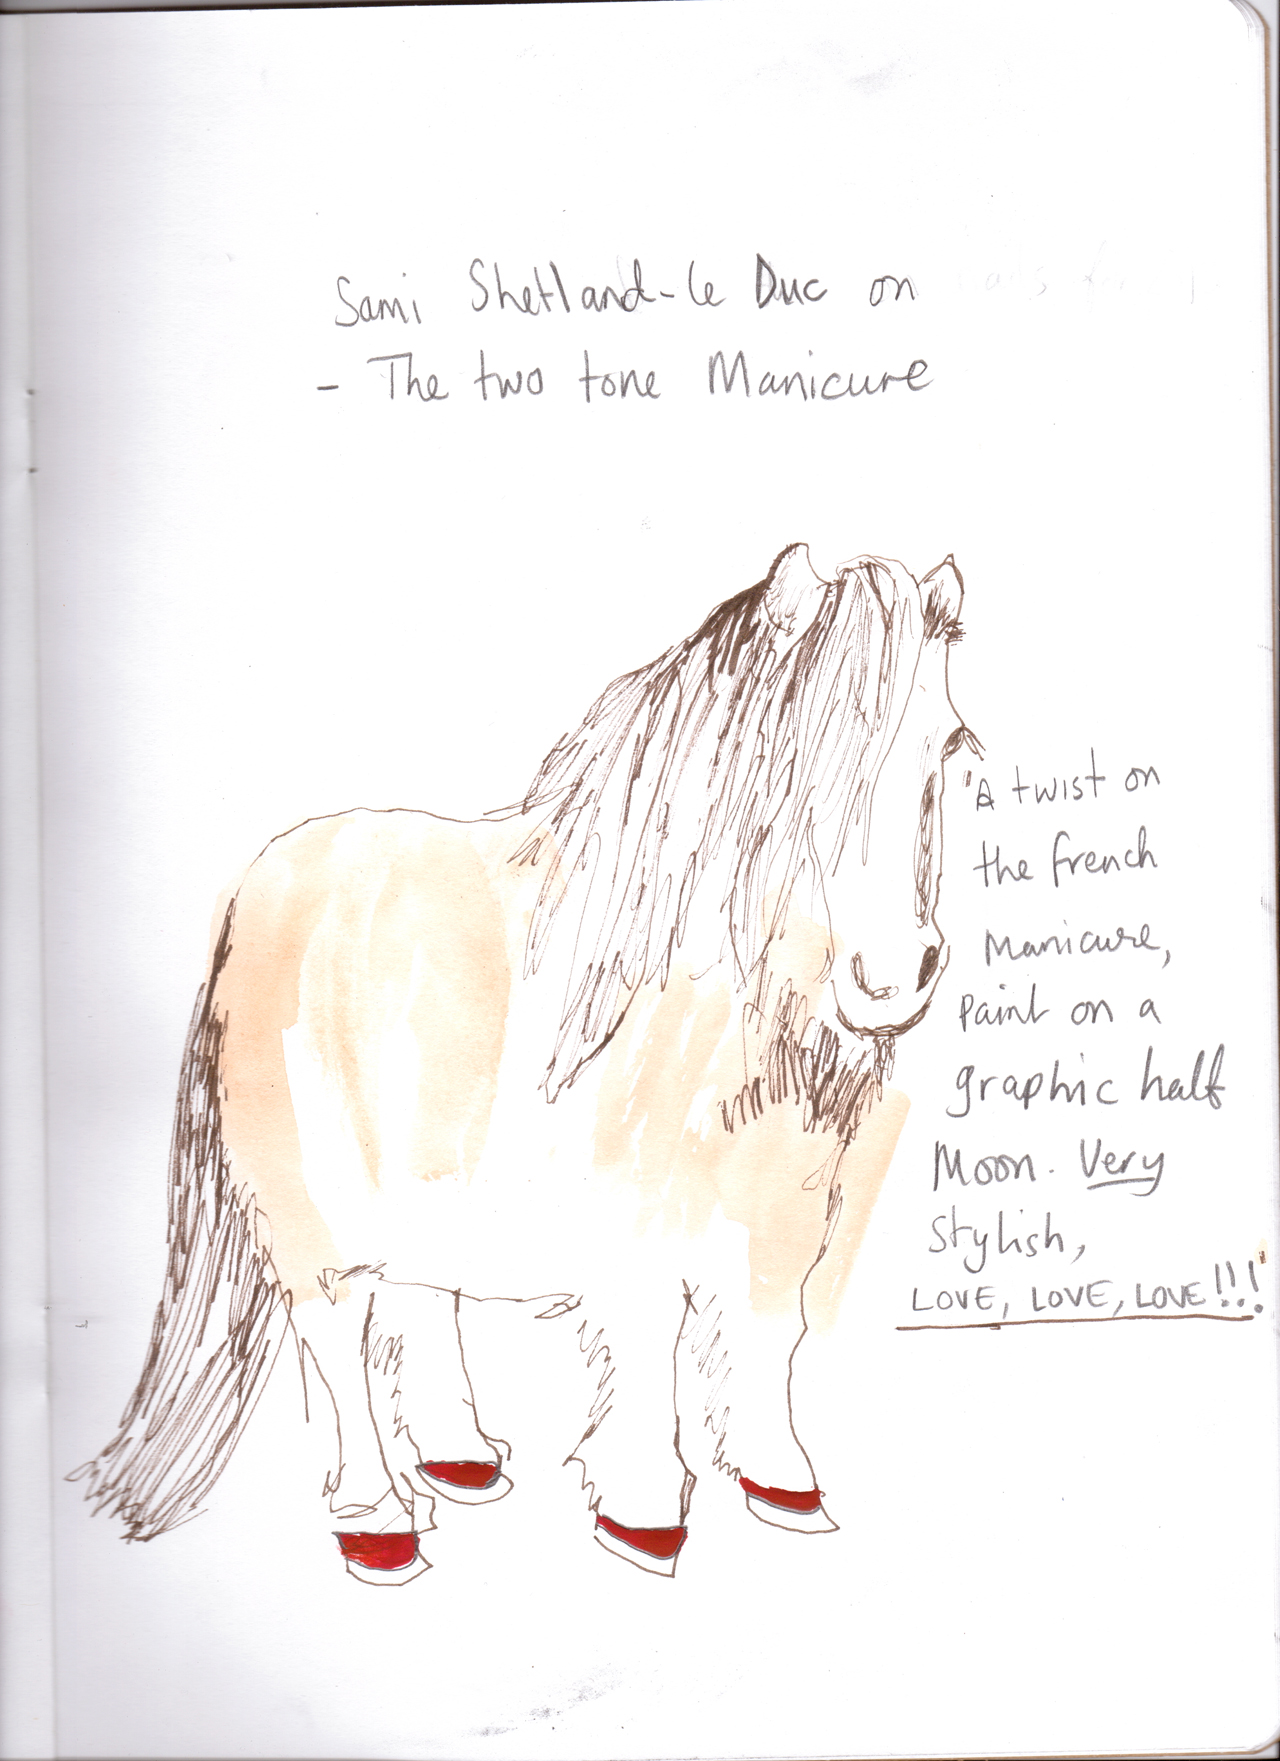 Sami Shetland-le Duc on
- The two tone Manicure
"A twist on
the french
Manicure,
paint on a
graphic half
Moon. Very
Stylish,
LOVE, LOVE, LOVE!!!"